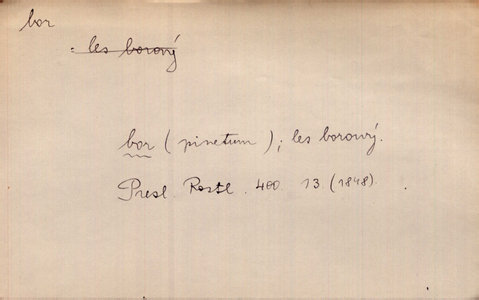 bor
: les borový
bor (pinetum); les borowý.
Presl. Rostl. 400. 13. (1848).